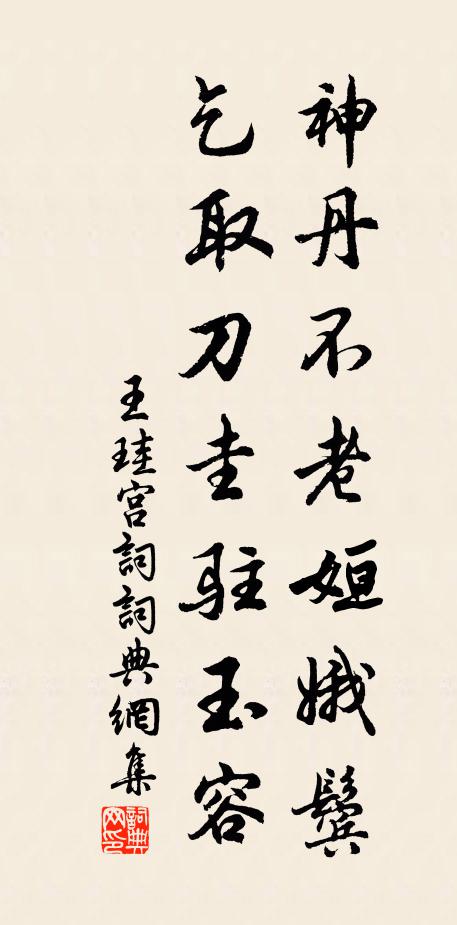 神丹不老姮娥鬓
乞取刀圭驻玉容
王珪宫詞詞典網集
詞典
网印